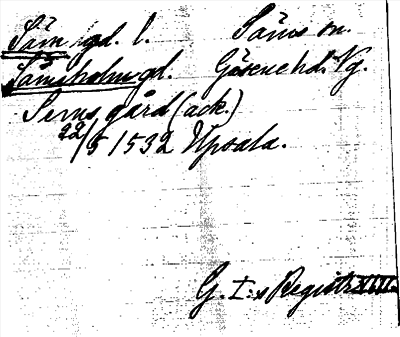 Säm hgd. l. Säms sn.
Sämsholm gd. Gäsene hd. Vg.
Sems gård (ack.)
22/5 1532 Upsala.
G. I:s Registr. XIII.